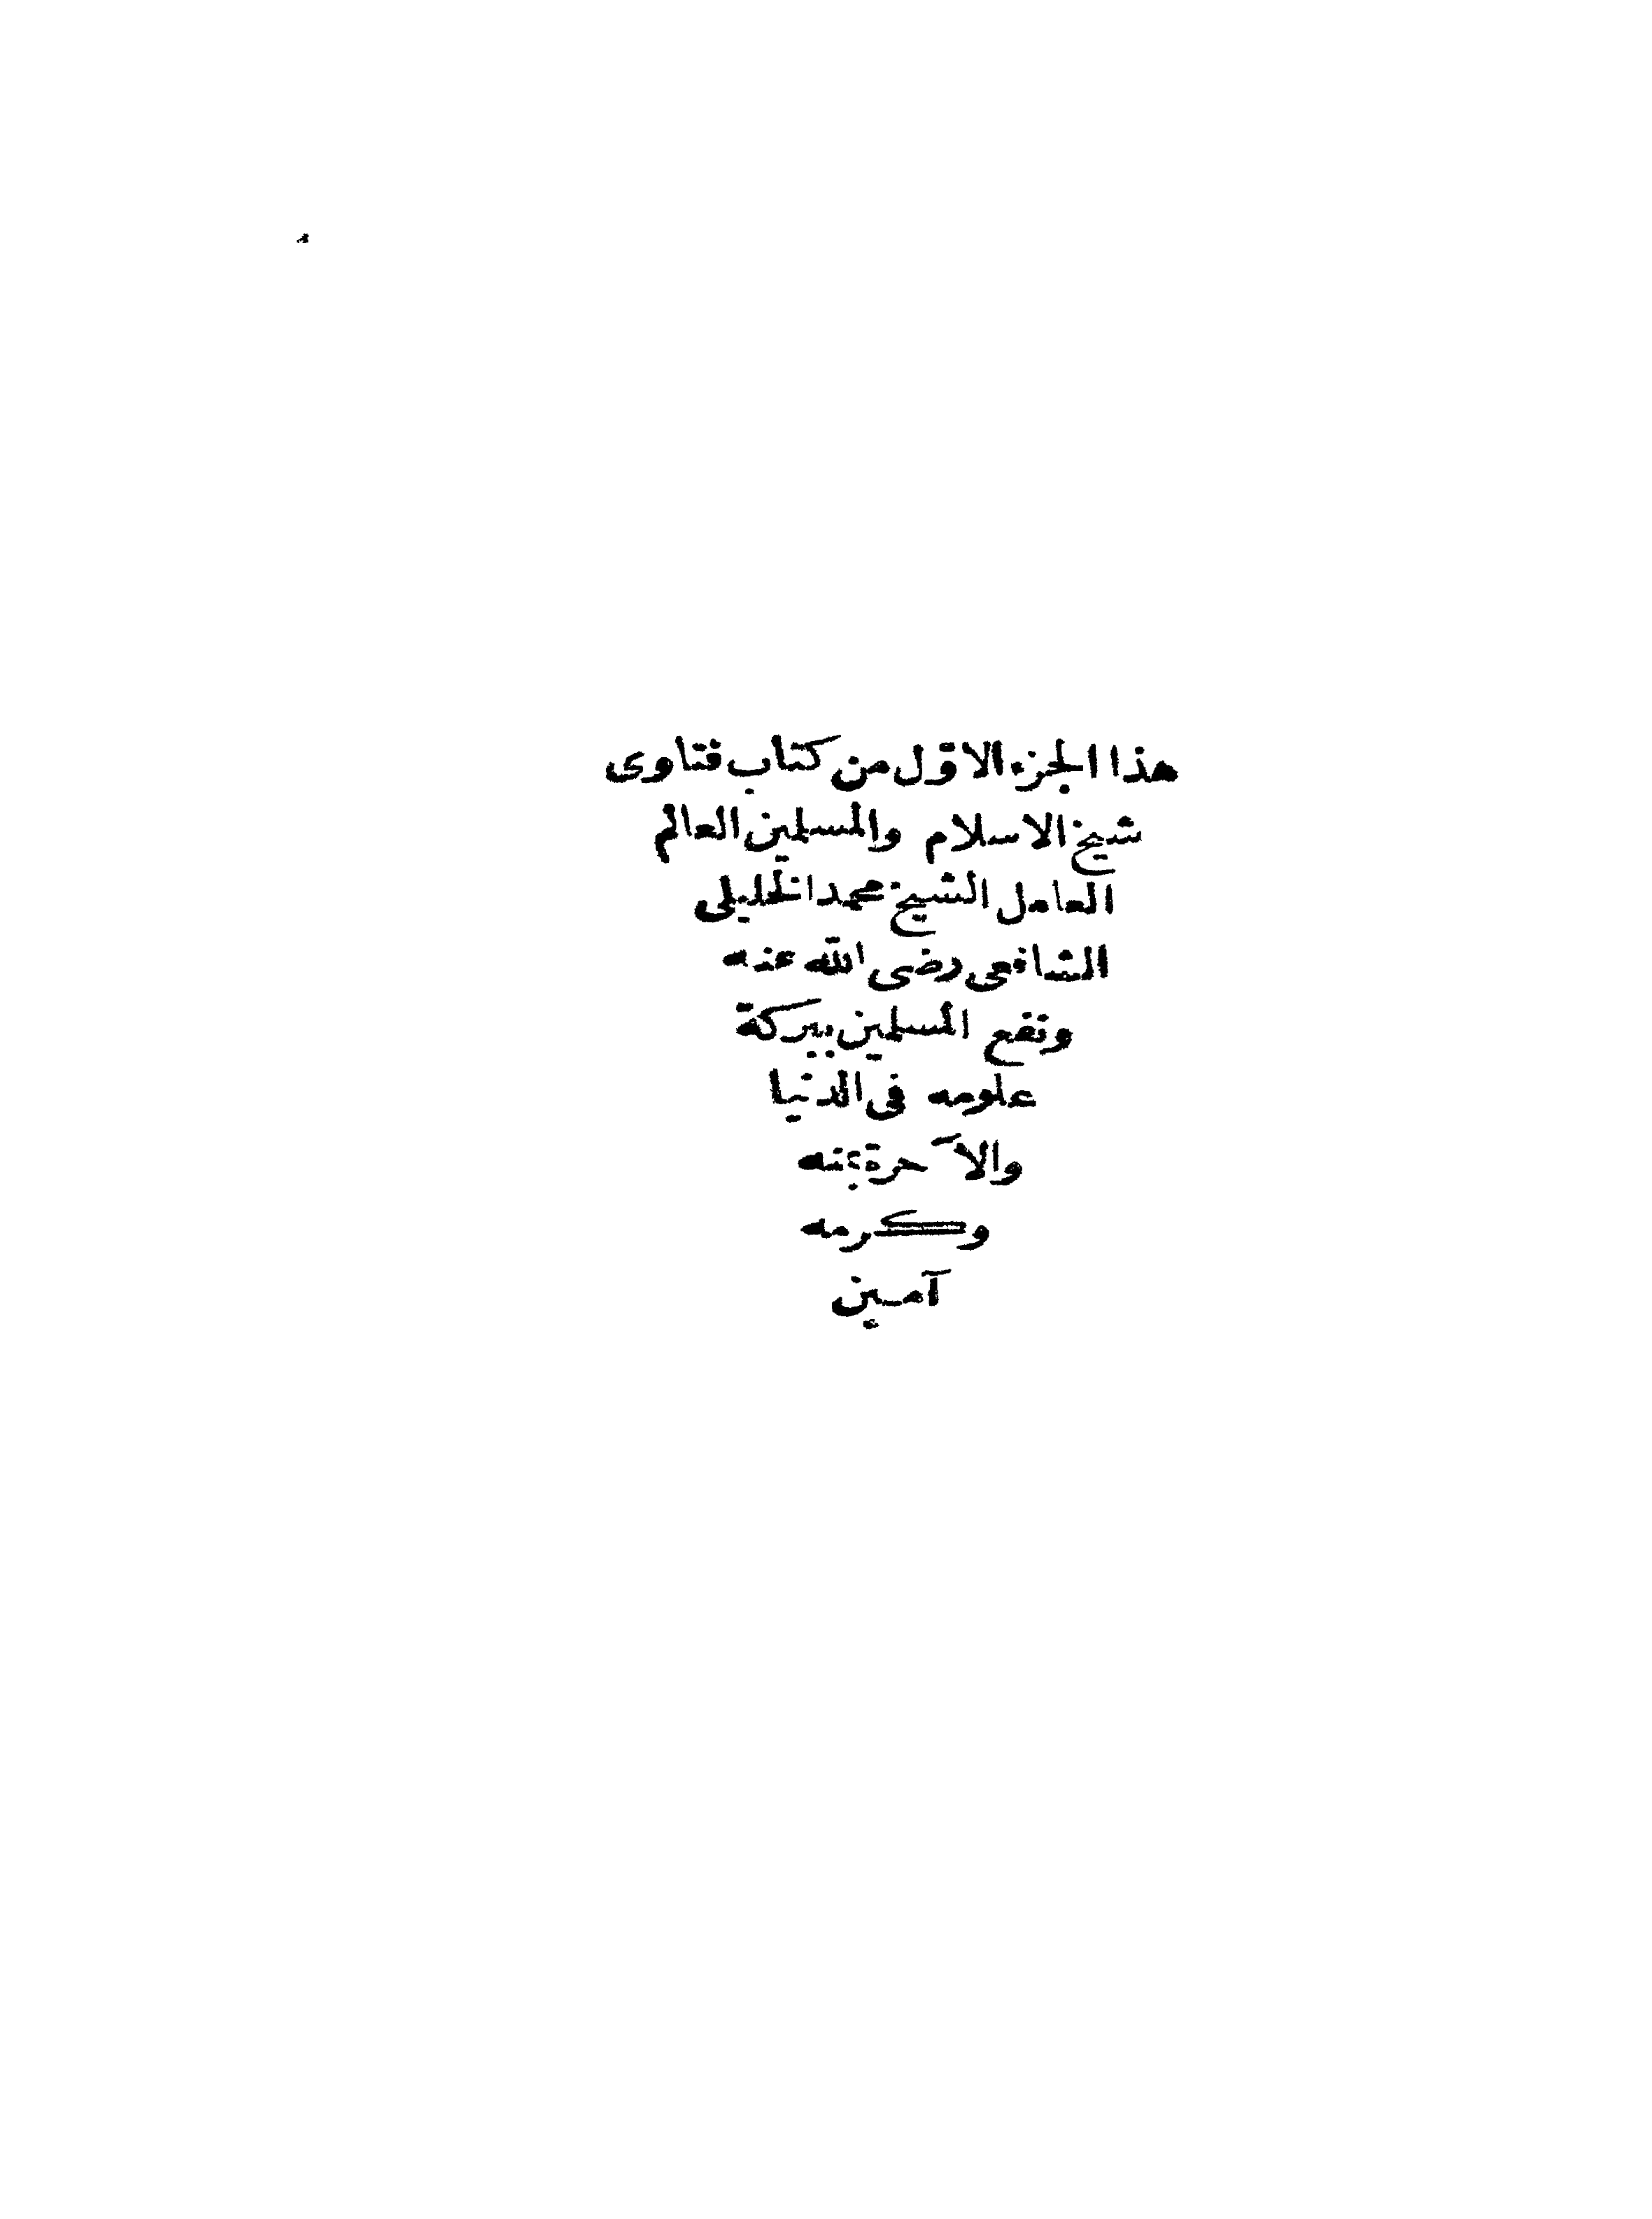 هذا الجزء الاوّل من كتاب فتاوى
شيخ الاسلام والمسلمين العالم
العامل الشيخ محمد الخليلى
الشافعى رضى الله عنه
ونفع المسلمين ببركة
علومه فى الدنيا
والآخرة بمنه
وكرمه
آمين